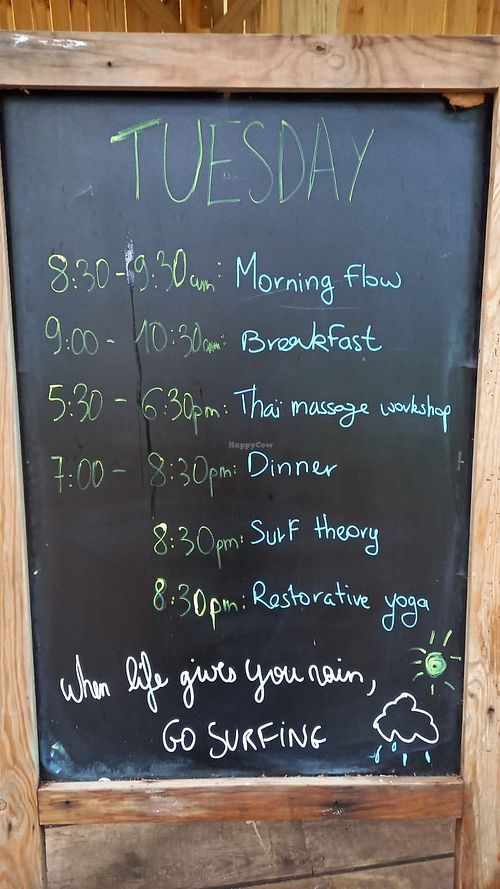 TUESDAY
8:30 - 9:30am: Morning Flow
9:00 - 10:30am: Breakfast
5:30 - 6:30pm: Thai massage workshop
7:00 - 8:30pm: Dinner
8:30pm: Surf theory
8:30pm: Restorative yoga
When life gives you rain,
GO SURFING
HappyCow